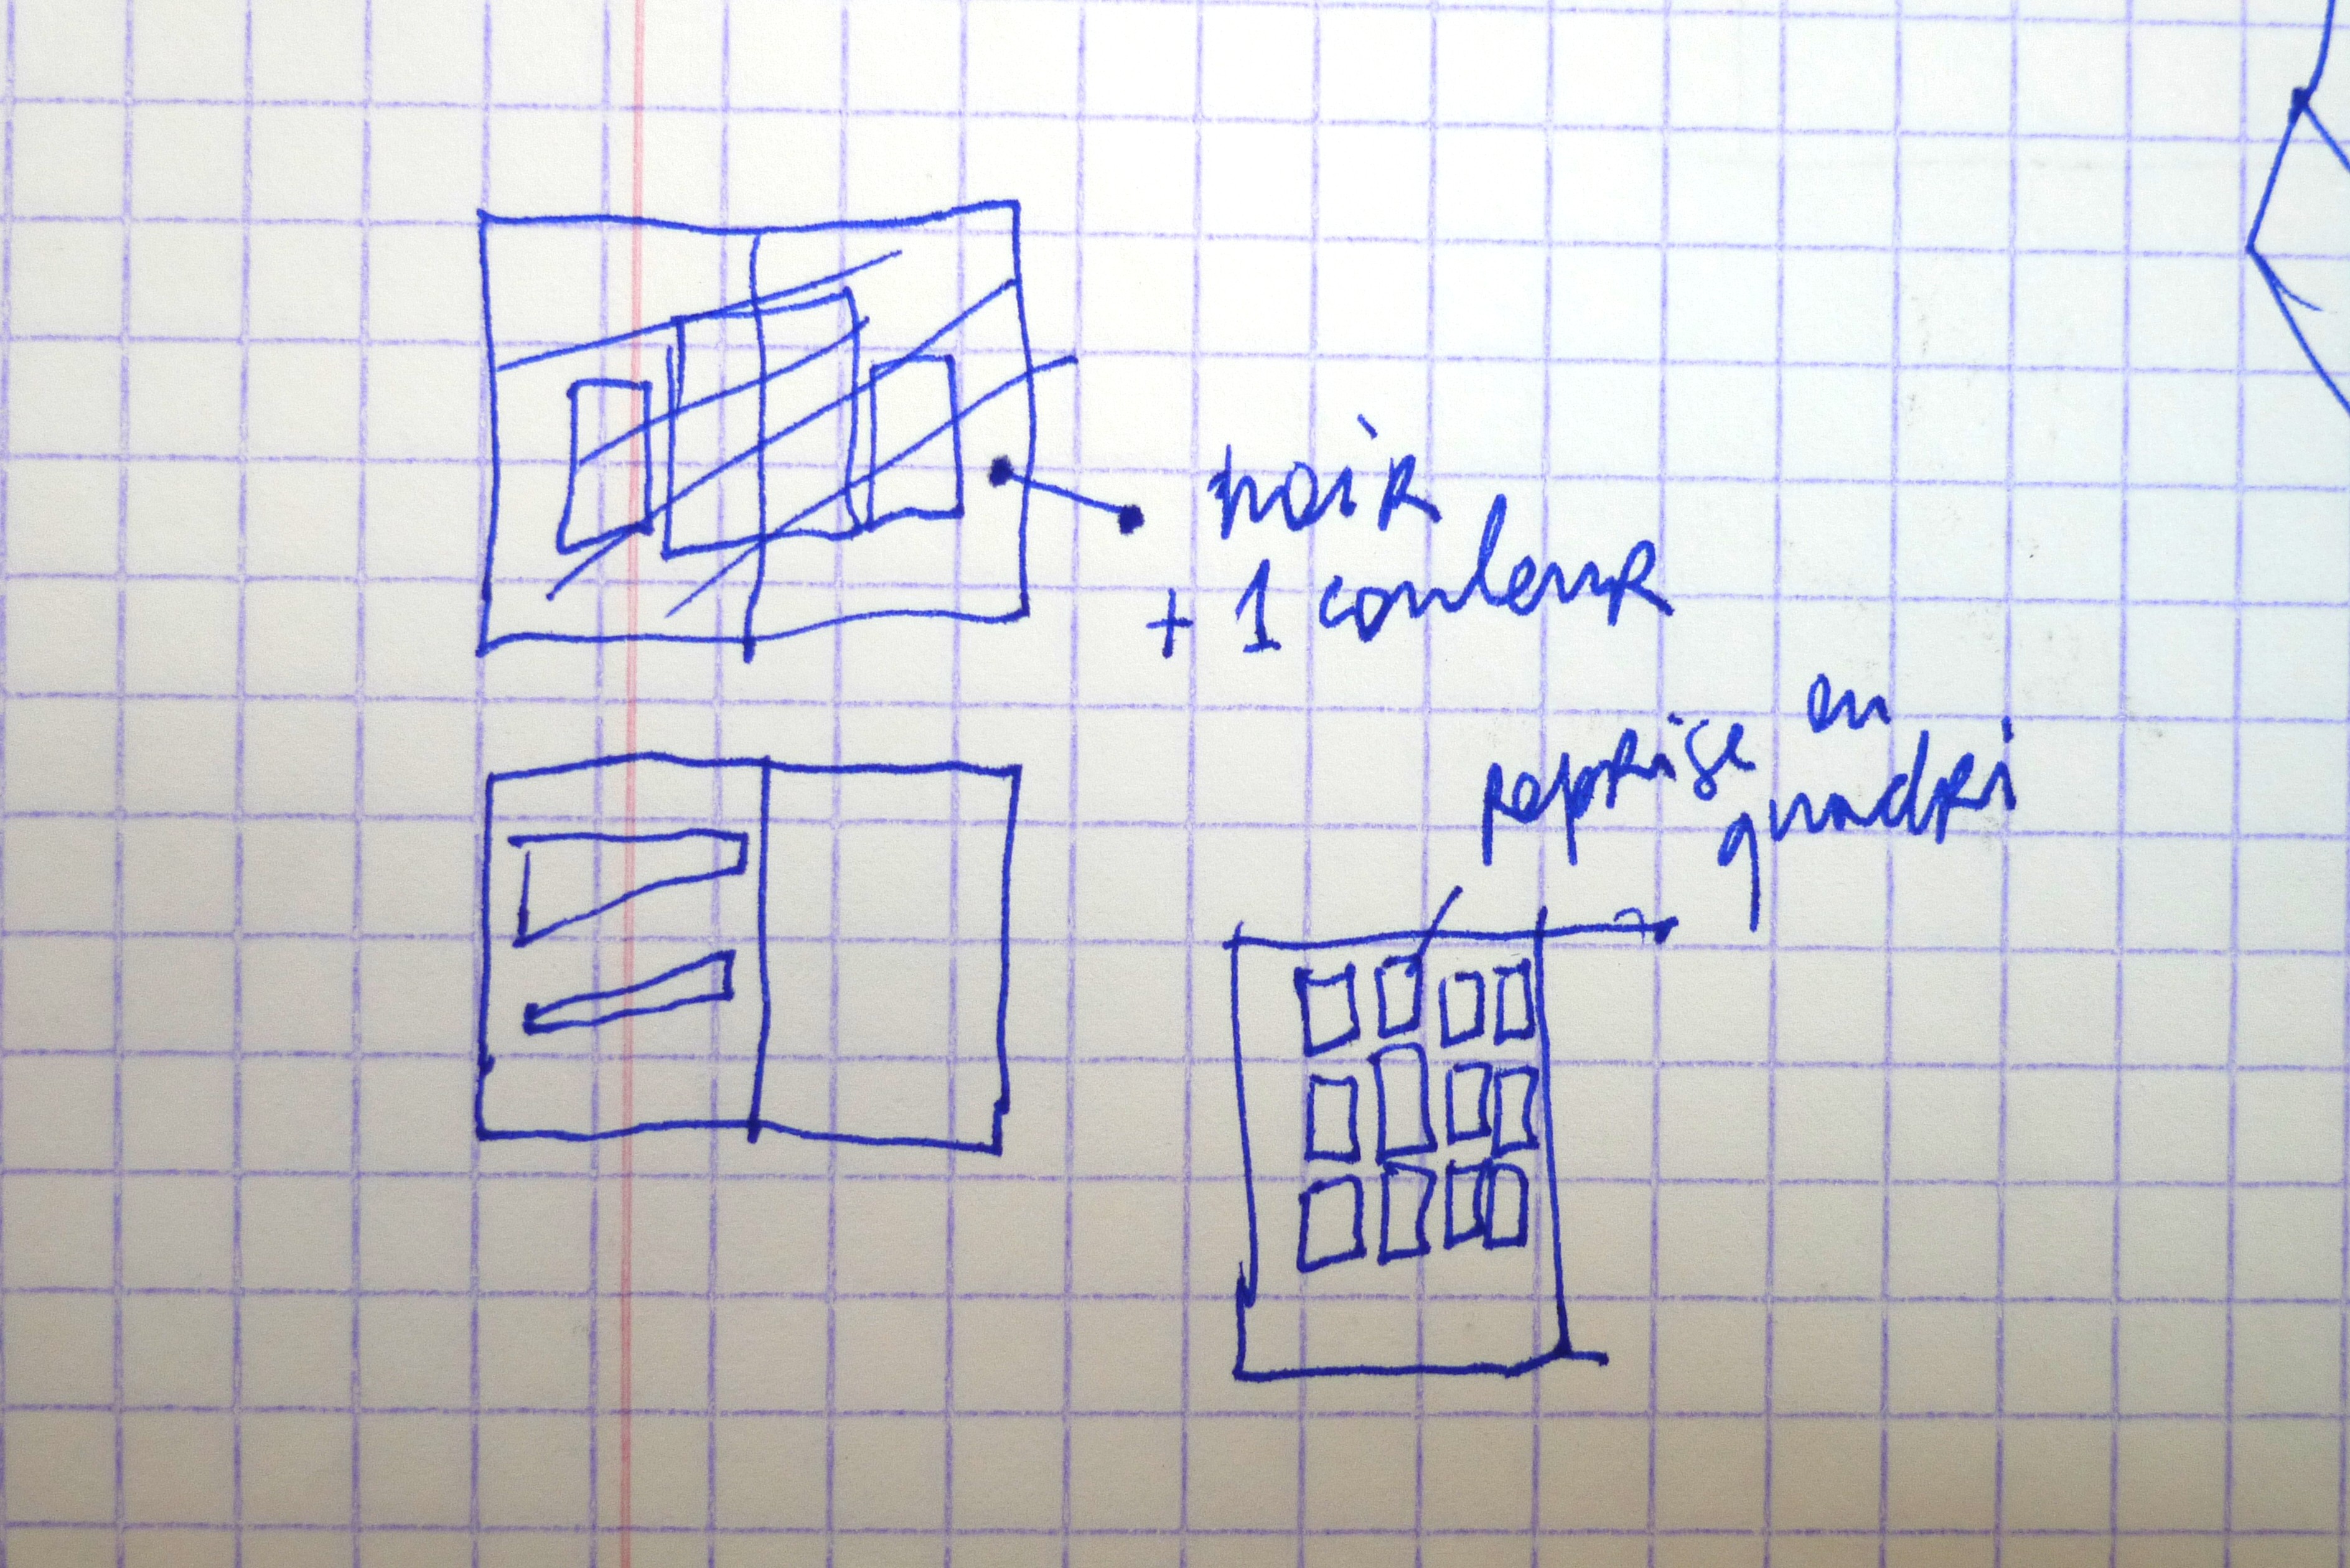 noir
+ 1 couleur
reprise en
quadri